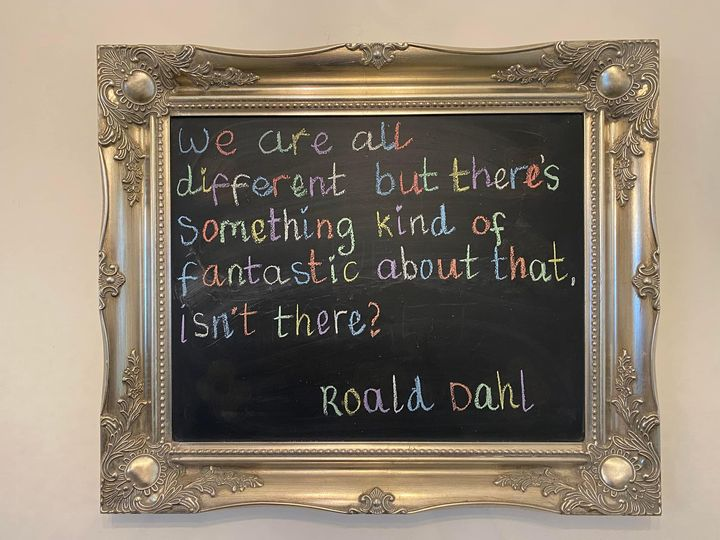 We are all
different but there's
something kind of
fantastic about that,
isn't there?
Roald Dahl